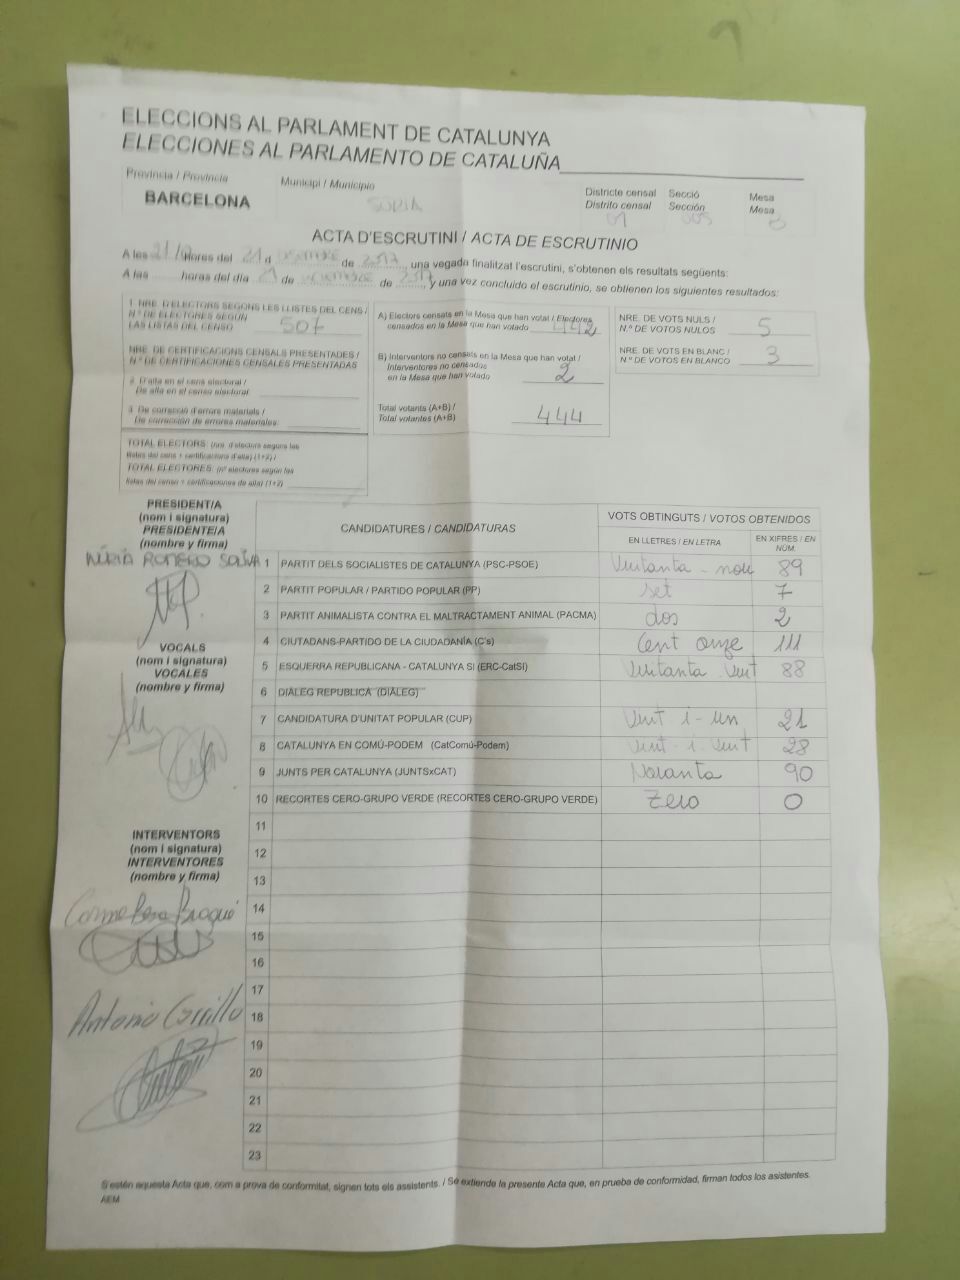 ELECCIONS AL PARLAMENT DE CATALUNYA
ELECCIONES AL PARLAMENTO DE CATALUÑA
Provincia / Provincia
BARCELONA
Municipi / Municipio
SÚRIA
Districte censal Secció Mesa
Distrito censal Sección Mesa
01
ACTA D'ESCRUTINI / ACTA DE ESCRUTINIO
A les 21 hores del 21 d de 2017, una vegada finalitzat l'escrutini, s'obtenen els resultats següents:
A las horas del día 21 de de 2017, y una vez concluido el escrutinio, se obtienen los siguientes resultados:
1. NRE. D'ELECTORS SEGONS LES LLISTES DEL CENS /
N.º DE ELECTORES SEGÚN
LAS LISTAS DEL CENSO 507
NRE. DE CERTIFICACIONS CENSALS PRESENTADES /
N.º DE CERTIFICACIONES CENSALES PRESENTADAS
2. D'alta en el cens electoral /
De alta en el censo electoral
3. De correcció d'errors materials /
De corrección de errores materiales
TOTAL ELECTORS: (nre. d'electors segons les
llistes del cens + certificacions d'alta) (1+2) /
TOTAL ELECTORES: (nº electores según las
listas del censo + certificaciones de alta) (1+2)
A) Electors censats en la Mesa que han votat / Electores
censados en la Mesa que han votado 442
B) Interventors no censats en la Mesa que han votat /
Interventores no censados
en la Mesa que han votado 2
Total votants (A+B) /
Total votantes (A+B) 444
NRE. DE VOTS NULS /
N.º DE VOTOS NULOS 5
NRE. DE VOTS EN BLANC /
N.º DE VOTOS EN BLANCO 3
PRESIDENT/A
(nom i signatura)
PRESIDENTE/A
(nombre y firma)
NÚRIA ROMERO
VOCALS
(nom i signatura)
VOCALES
(nombre y firma)
INTERVENTORS
(nom i signatura)
INTERVENTORES
(nombre y firma)
Antonio
CANDIDATURES / CANDIDATURAS
VOTS OBTINGUTS / VOTOS OBTENIDOS
EN LLETRES / EN LETRA
EN XIFRES / EN NÚM.
1 PARTIT DELS SOCIALISTES DE CATALUNYA (PSC-PSOE) Vuitanta-nou 89
2 PARTIT POPULAR / PARTIDO POPULAR (PP) set 7
3 PARTIT ANIMALISTA CONTRA EL MALTRACTAMENT ANIMAL (PACMA) dos 2
4 CIUTADANS-PARTIDO DE LA CIUDADANÍA (C's) Cent onze 111
5 ESQUERRA REPUBLICANA - CATALUNYA SÍ (ERC-CatSí) Vuitanta-vuit 88
6 DIÀLEG REPUBLICÀ (DIÀLEG)
7 CANDIDATURA D'UNITAT POPULAR (CUP) Vint-i-un 21
8 CATALUNYA EN COMÚ-PODEM (CatComú-Podem) Vint-i-vuit 28
9 JUNTS PER CATALUNYA (JUNTSxCAT) Noranta 90
10 RECORTES CERO-GRUPO VERDE (RECORTES CERO-GRUPO VERDE) Zero 0
11
12
13
14
15
16
17
18
19
20
21
22
23
S'estén aquesta Acta que, com a prova de conformitat, signen tots els assistents. / Se extiende la presente Acta que, en prueba de conformidad, firman todos los asistentes.
AEM